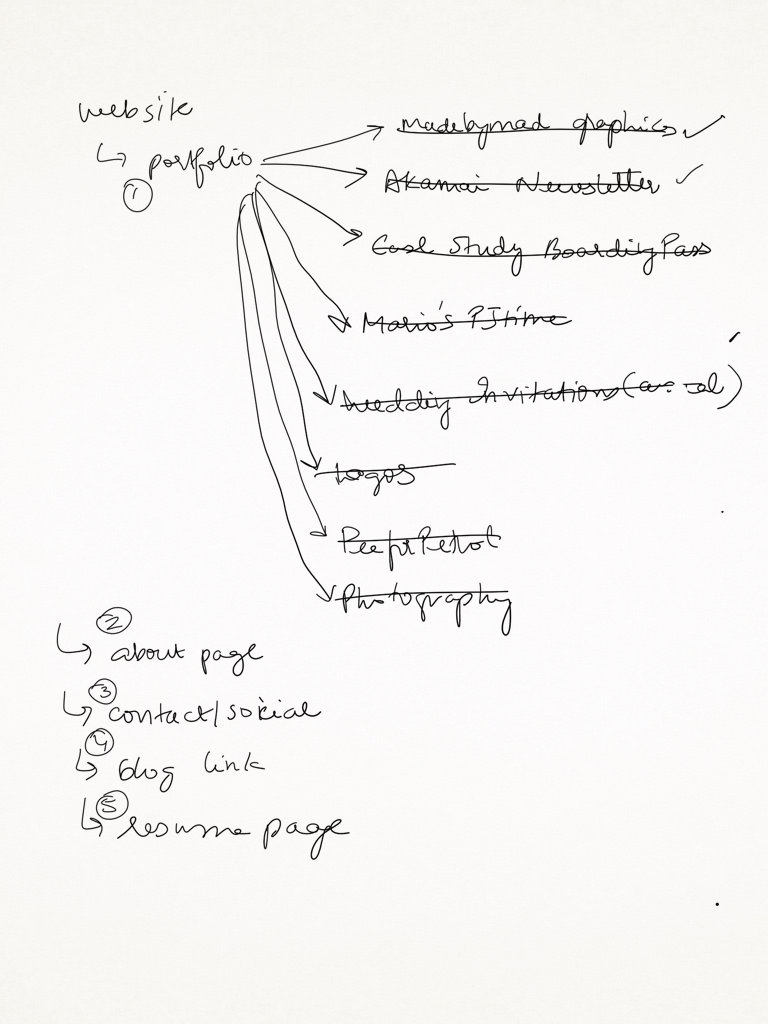 website
↳ portfolio
①
Madebymad graphics ✓
Akamai Newsletter ✓
Case Study Boarding Pass
Mario's PJtime
Wedding Invitations
Logos
Photography
②
↳ about page
③
↳ contact/social
④
↳ blog link
⑤
↳ resume page